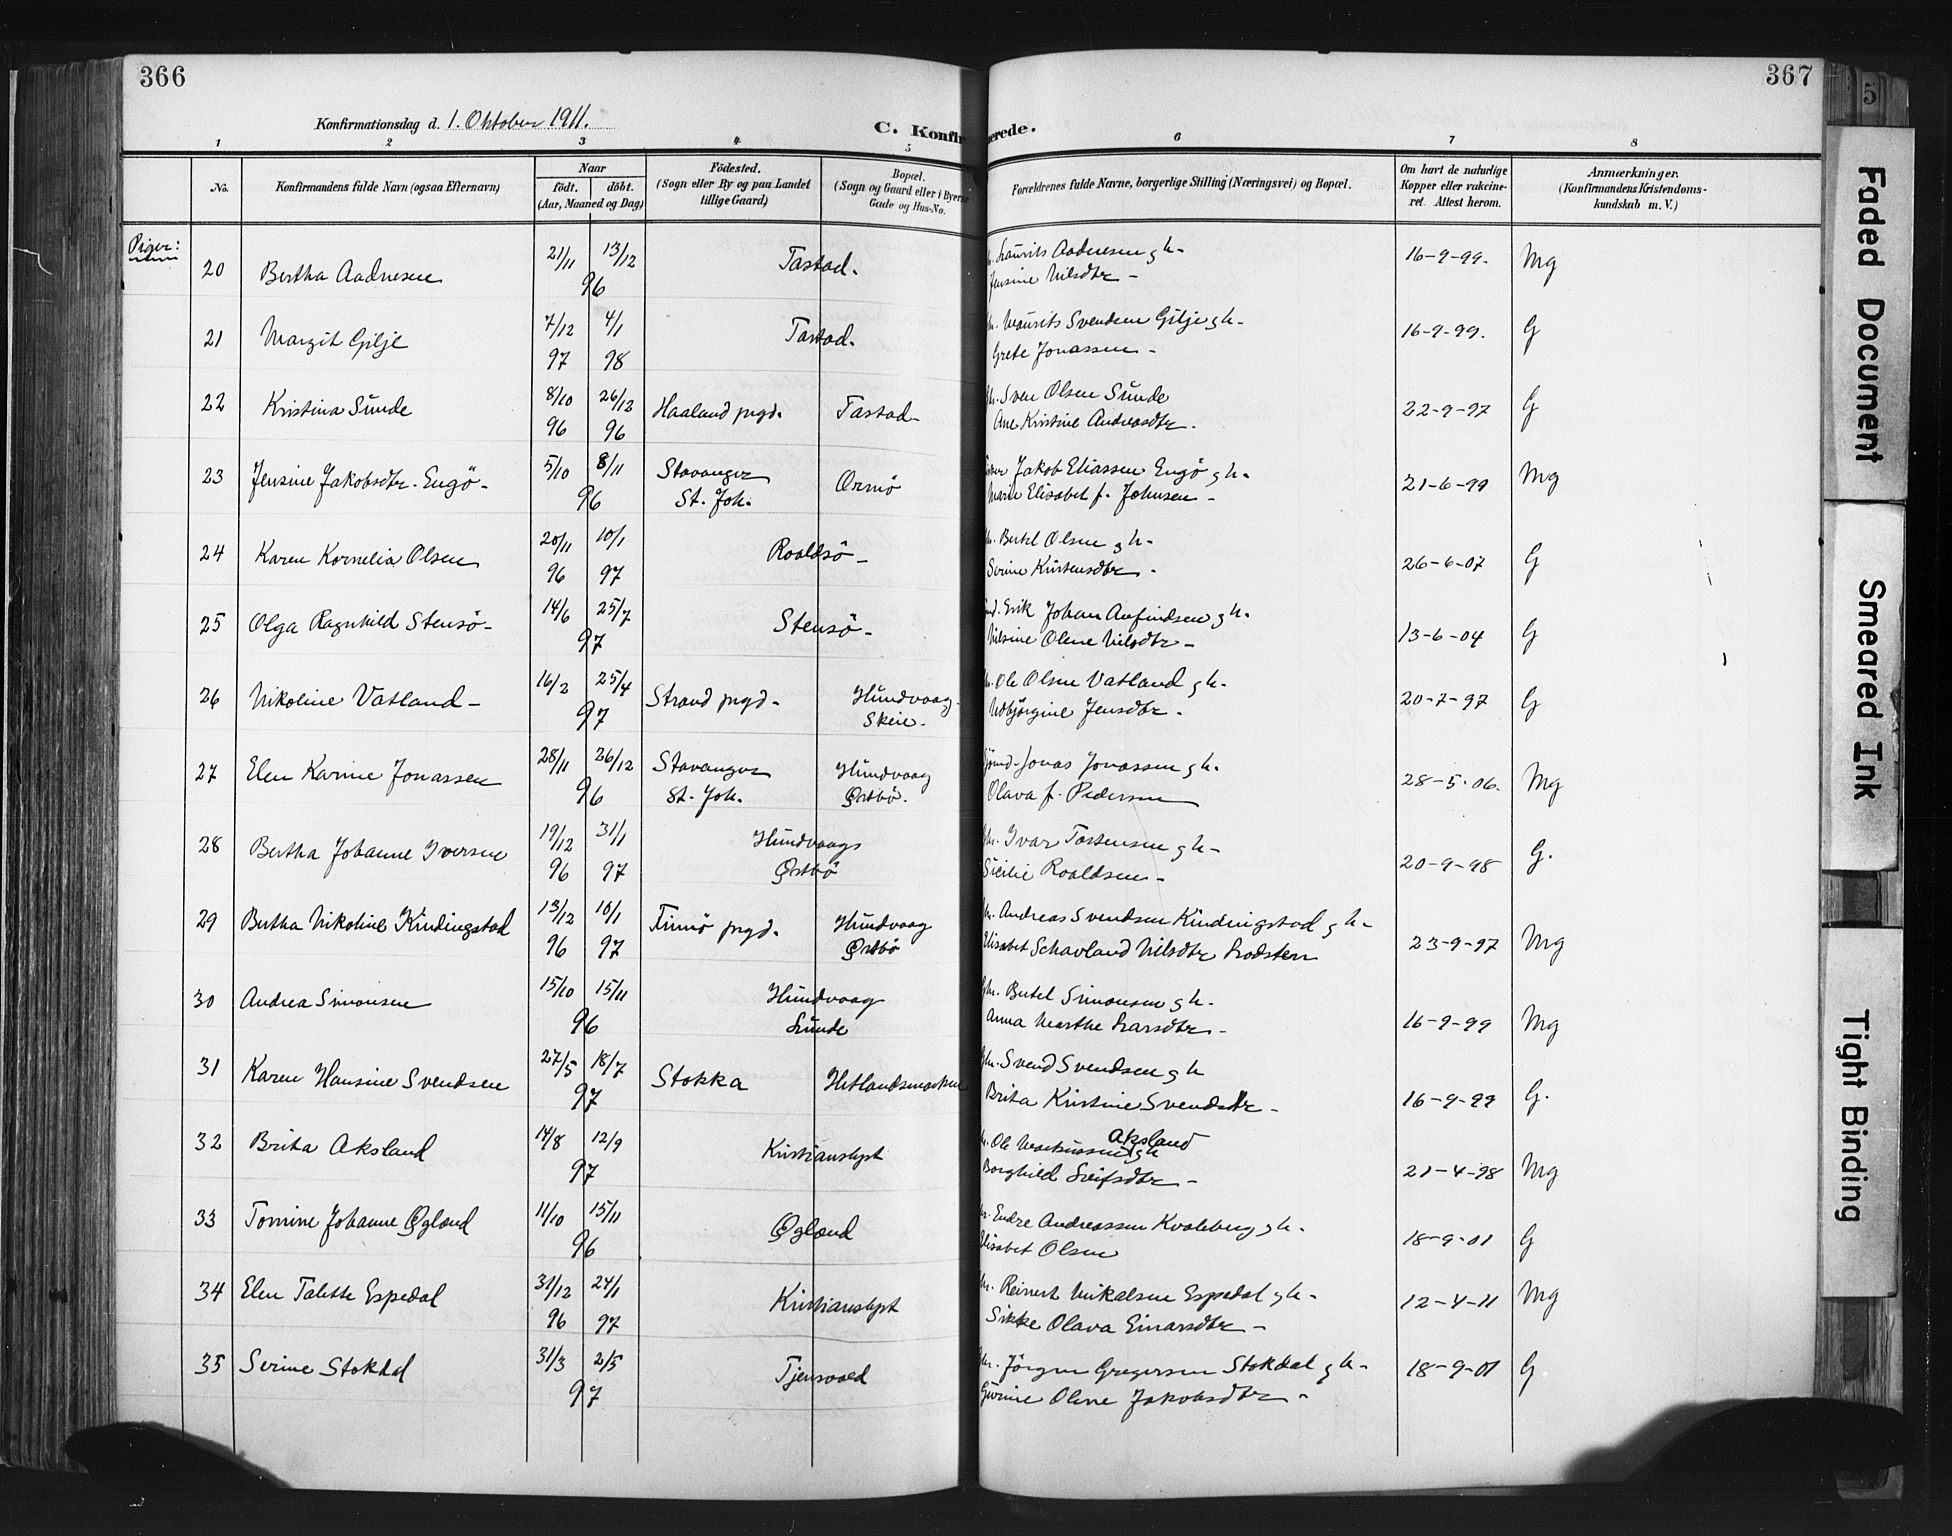 366
367
Konfirmationsdag d. 1. Oktober 1911.
C. Konfirmerede.
1 2 3 4 5 6 7 8
No.
Konfirmandens fulde Navn (ogsaa Efternavn)
Naar
födt. döbt.
(Aar, Maaned og Dag)
Födested.
(Sogn eller By og paa Landet
tillige Gaard)
Bopæl.
(Sogn og Gaard eller i Byerne
Gade og Hus-No.
Forældrenes fulde Navne, borgerlige Stilling (Næringsvei) og Bopæl.
Om havt de naturlige
Kopper eller vakcine-
ret. Attest herom.
Anmærkninger.
(Konfirmandens Kristendoms-
kundskab m. V.)
Piger:
20 Bertha Aadnesen 21/11 13/12 96 Tastad. Laurits Aadnesen g h- 16-9-99. Mg
Jensine Nilsdtr -
21 Margit Gilje 7/12 97 4/1 98 Tastad. Maurits Svendsen Gilje g h- 16-9-99. G
Grete Jonassen -
22 Kristina Sunde 8/10 96 26/12 96 Haaland prgd. Tastad Sven Olsen Sunde 22-9-97 G
Ane Kristine Andreasdtr.
23 Jensine Jakobsdtr. Engö- 5/10 8/11 96 Stavanger St. Joh. Ormö Jakob Eliassen Engö g h. 21-6-99 Mg
Marie Elisabet f. Johnsen -
24 Karen Kornelia Olsen 20/11 96 10/1 97 Roaldsö- Bertel Olsen g h- 26-6-07 G
Serine Kristensdtr.
25 Olga Ragnhild Stensö- 14/6 25/7 97 Stensö- Erik Johan Anfindsen g h. 13-6-04 G
Nilsine Oline Nilsdtr -
26 Nikoline Vatland- 16/2 25/4 97 Strand prgd. Hundvaag Skeie. Ole Olsen Vatland g h- 20-7-97 G
Udbjörgine Jensdtr.
27 Elen Karine Jonassen 28/11 26/12 96 Stavanger St. Joh. Hundvaag Østbö. Jonas Jonassen g h. 28-5-06. Mg
Olava f. Pedersen
28 Bertha Johanne Iversen 19/12 96 31/1 97 Hundvaags Østbö Ivar Tostensen g h- 20-9-98 G.
Sicilie Roaldsen -
29 Bertha Nikoline Kindingstad 13/12 96 10/1 97 Finnö prgd. Hundvaag Østbö Andreas Svendsen Kindingstad g h- 23-9-97 Mg
Elisabet Schavland Nilsdtr Lodsten
30 Andrea Simonsen 15/10 15/11 96 Hundvaag Lunde Bertel Simonsen g h- 16-9-99 Mg
Anna Marthe Larsdtr -
31 Karen Hansine Svendsen 27/5 18/7 97 Stokka Hetlandsmarken Svend Svendsen g h 16-9-99 G.
Brita Kristine Svendsdtr -
32 Brita Aksland 14/8 12/9 97 Kristianslyst Ole Markussen Aksland g h 21-4-98 Mg
Borghild Leifsdtr -
33 Tomine Johanne Øglænd 11/10 15/11 96 Øglænd Endre Andreassen Kvaleberg g h- 18-9-01 G
Elisabet Olsen
34 Elen Talette Espedal 31/12 96 24/1 97 Kristianslyst Reinert Mikalsen Espedal g h- 12-4-11 Mg
Sikke Olava Einarsdtr -
35 Serine Stokdal 31/3 2/5 97 Tjensvold Jörgen Gregersen Stokdal g h- 18-9-01 G
Gurine Oline Jakobsdtr -
5
Faded Document
Smeared Ink
Tight Binding